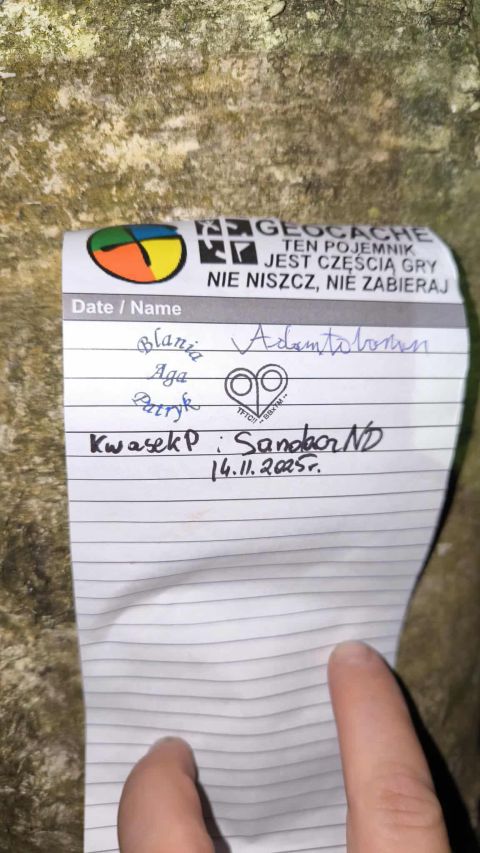 GEOCACHE
TEN POJEMNIK
JEST CZĘŚCIĄ GRY
NIE NISZCZ, NIE ZABIERAJ
Date / Name
Blania
Aga
Patryk
TFTC!!
KwasekP i SandborND
14.11.2025r.